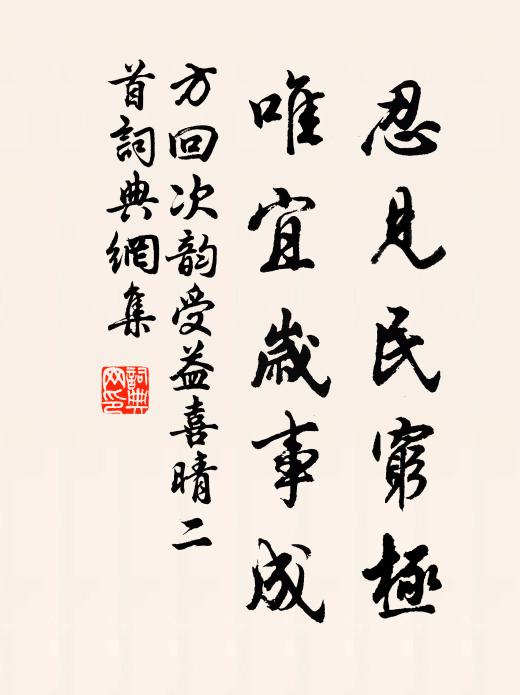 忍見民窮極
唯宜歲事成
方回次韵受益喜晴二
首詞典網集
詞典
网印